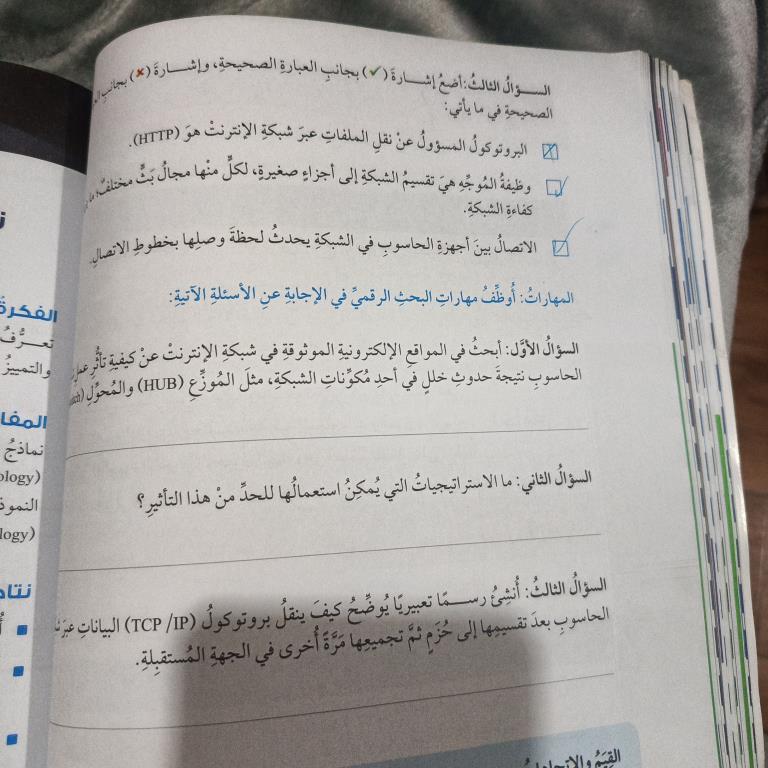 السؤالُ الثالثُ: أضعُ إشارةَ (✓) بجانبِ العبارةِ الصحيحةِ، وإشارةَ (✗) بجانبِ
الصحيحةِ في ما يأتي:
البروتوكولُ المسؤولُ عنْ نقلِ الملفاتِ عبرَ شبكةِ الإنترنتْ هوَ (HTTP).
وظيفةُ المُوجِّهِ هيَ تقسيمُ الشبكةِ إلى أجزاءٍ صغيرةٍ، لكلٍّ منْها مجالُ بَثٍّ مختلفٌ؛
كفاءةِ الشبكةِ.
الاتصالُ بينَ أجهزةِ الحاسوبِ في الشبكةِ يحدثُ لحظةَ وصلِها بخطوطِ الاتصالِ.
المهاراتُ: أُوظِّفُ مهاراتِ البحثِ الرقميِّ في الإجابةِ عنِ الأسئلةِ الآتيةِ:
السؤالُ الأوَّلُ: أبحثُ في المواقعِ الإلكترونيةِ الموثوقةِ في شبكةِ الإنترنتْ عنْ كيفيةِ تأثُّرِ عملِ
الحاسوبِ نتيجةَ حدوثِ خللٍ في أحدِ مكوِّناتِ الشبكةِ، مثلَ المُوزِّعِ (HUB) والمُحوِّلِ
السؤالُ الثاني: ما الاستراتيجياتُ التي يُمكِنُ استعمالُها للحدِّ منْ هذا التأثيرِ؟
السؤالُ الثالثُ: أُنشِئُ رسمًا تعبيريًا يُوضِّحُ كيفَ ينقلُ بروتوكولُ (TCP /IP) البياناتِ عبرَ
الحاسوبِ بعدَ تقسيمِها إلى حُزَمٍ ثمَّ تجميعِها مَرَّةً أُخرى في الجهةِ المُستقبِلةِ.
القِيَمُ والاتجاهاتُ
الفكرةُ
تعرُّفُ
والتمييزُ
المفا
نماذجُ
ology)
النموذ
logy)
نتاجا